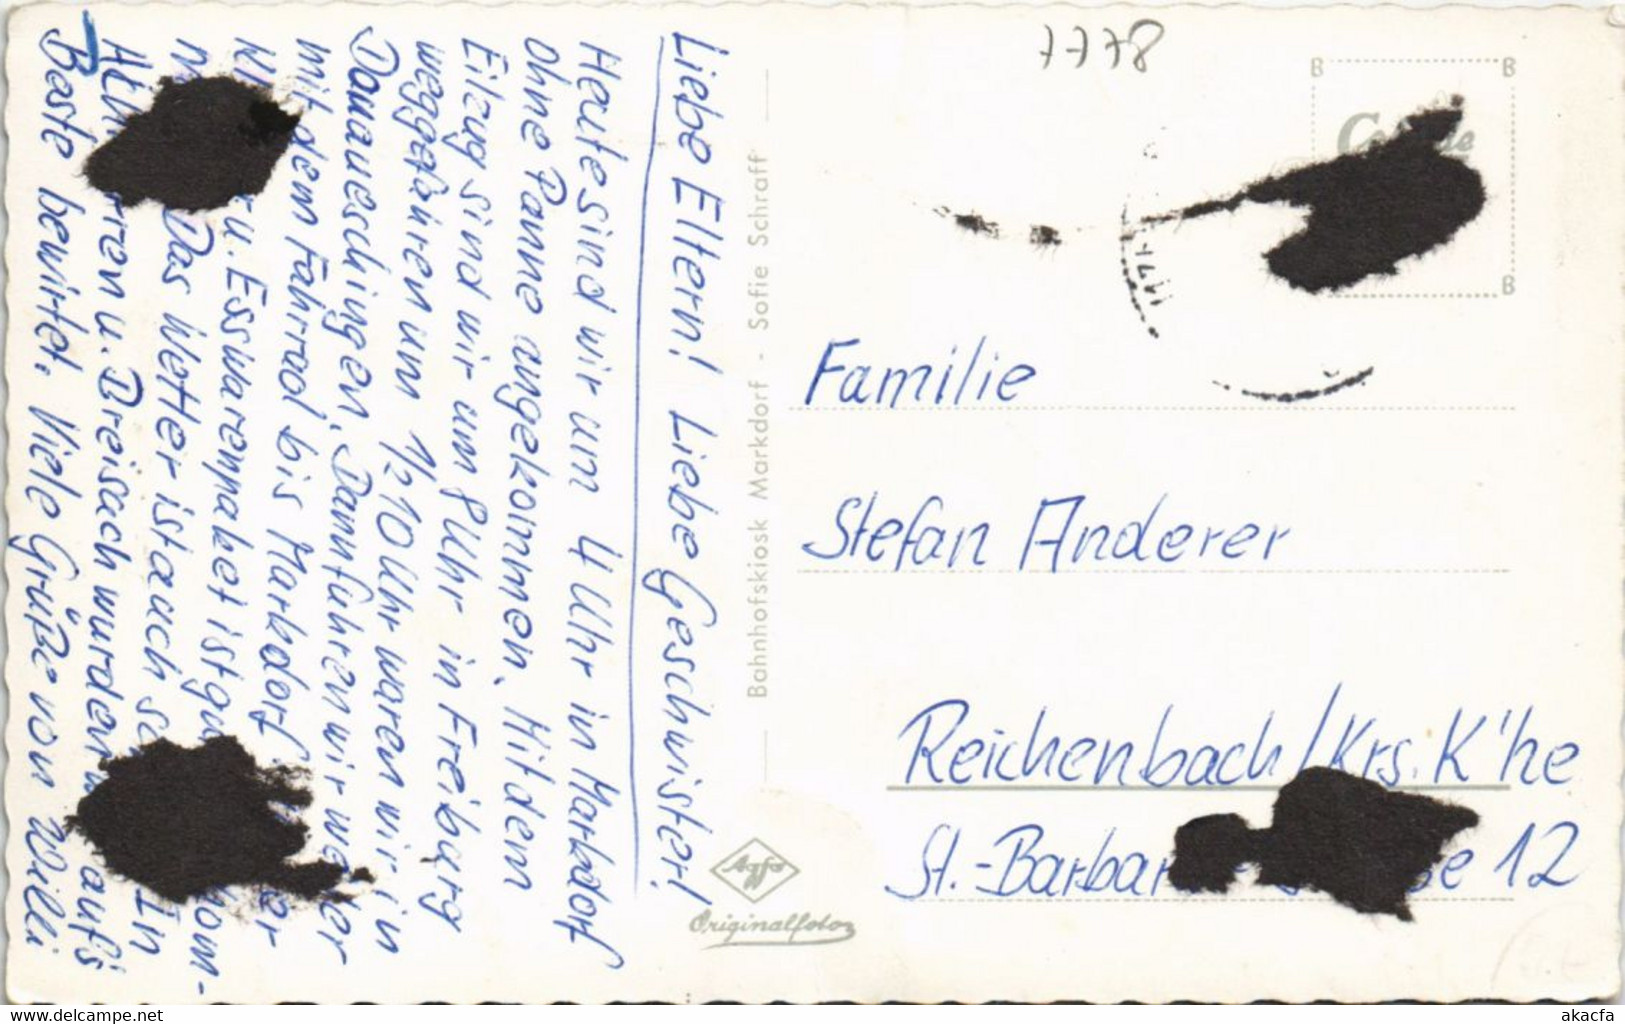 Liebe Eltern! Liebe Geschwister!
Heute sind wir um 4 Uhr in Markdorf
ohne Panne angekommen. Mit dem
Eilzug sind wir um 8 Uhr in Freiburg
weggefahren um 1/2 10 Uhr waren wir in
Donaueschingen. Dann fuhren wir wieder
mit dem Fahrrad bis Markdorf.
u. Esswarenpaket ist gut
Das Wetter ist auch In
u. Breisach wurden aufs
Beste bewirtet. Viele Grüße von Willi
Bahnhofskiosk Markdorf - Sofie Schraff
Agfa
Originalfoto
7778
B B
B
Familie
Stefan Anderer
Reichenbach / Krs. K'he
St.-Barbara 12
delcampe.net
akacfa